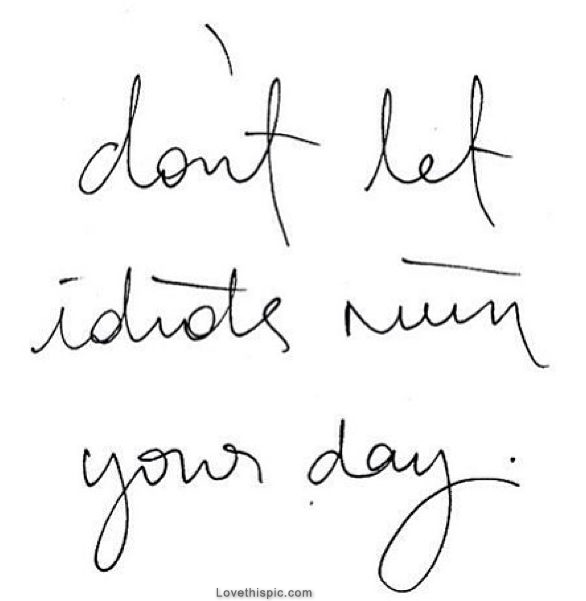 don't let
idiots ruin
your day.
Lovethispic.com